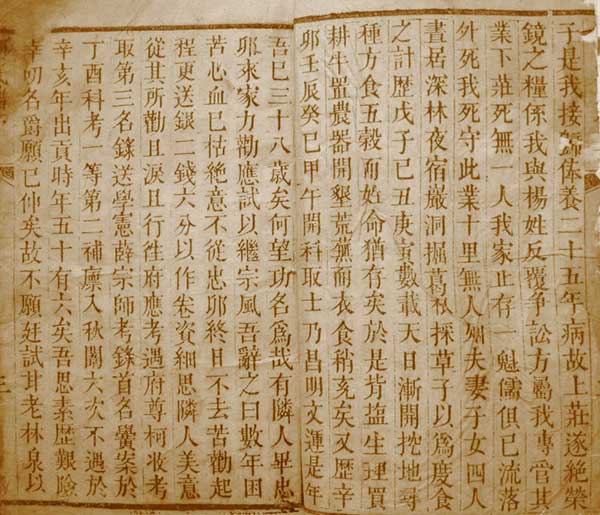 子是我接歸俸養二十五年病故上莊遂絶榮
鏡之糧係我與楊姓反覆爭訟方屬我專管其
業下莊死無一人我家止存一魁儒俱已流落
外死我死守此業十里無人烟夫妻子女四人
晝居深林夜宿巖洞掘葛根採草子以爲度食
之計歷戊子己丑庚寅數載天日漸開挖地尋
種方食五穀而姓命猶存矣於是貨鹽生理買
耕牛置農器開墾荒蕪而衣食稍充矣又歷辛
卯壬辰癸巳甲午開科取士乃昌明文運是年
吾已三十八歲矣何望功名爲哉有隣人畢忠
卯來家力勸應試以繼宗風吾辭之曰數年困
苦心血已枯絶意不從忠卯終日不去苦勸起
程更送銀二錢六分以作卷資細思隣人美意
從其所勸且淚且行徃府應考遇府尊柯收考
取第三名錄送學憲薛宗師考錄首名黌案於
丁酉科考一等第二補廩入秋闈六次不遇於
辛亥年出貢時年五十有六矣吾思素歷艱險
幸叨名爵願已仲矣故不願廷試甘老林泉以